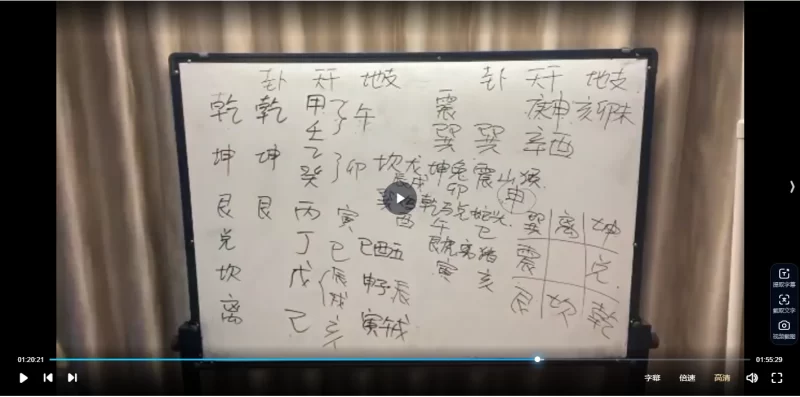 卦 天干 地支 卦 天干 地支
乾 乾 甲 午 震 庚申 亥卯未
壬
巽 巽 辛 酉
坤 坤 乙 卯 坎 龙 坤 兔 震 山 猴
癸 辰戌 卯 申
艮 艮 丙 寅 酉 乾 马 兑 巳 巽 离 坤
午
兑 丁 巳 巳酉丑 艮 虎 猪 震 兑
寅 亥
坎 戊 辰戌 申子辰 艮 坎 乾
离 己 亥 寅午戌
01:20:21 01:55:29
提取字幕
截取文字
视频截图
字幕 倍速 高清